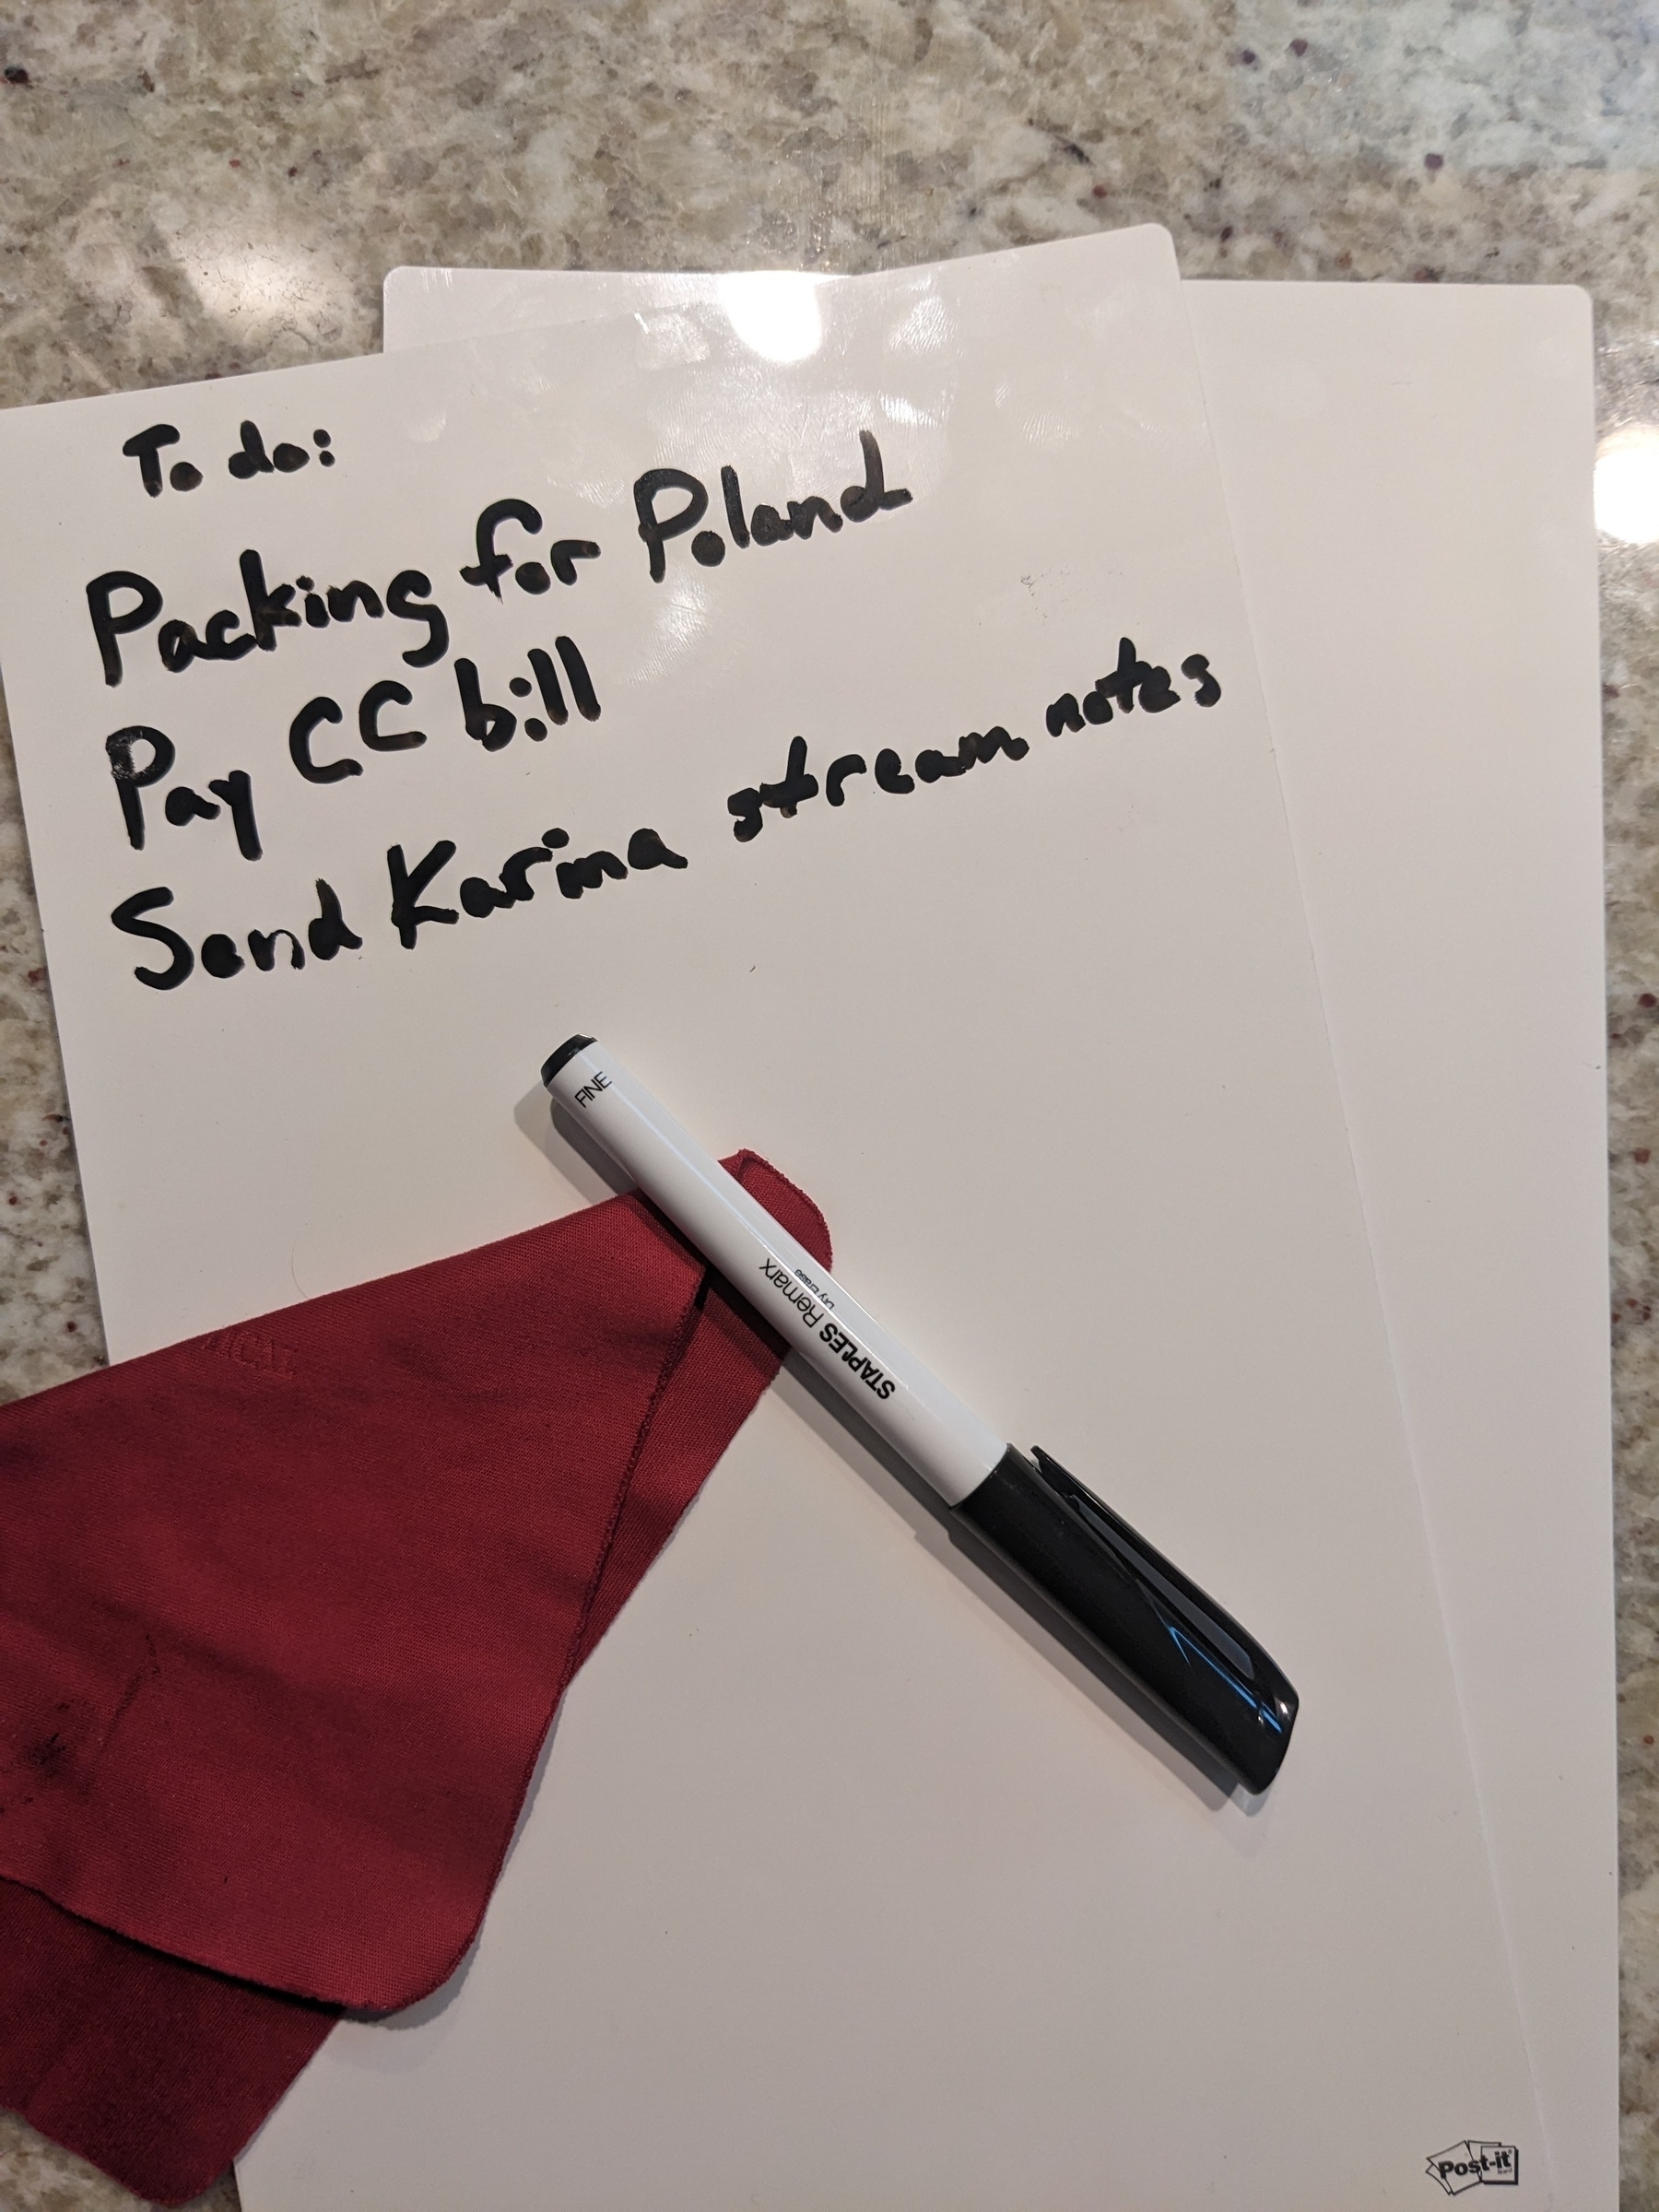 To do:
Packing for Poland
Pay CC bill
Send Karina stream notes
FINE
STAPLES Remarx
Dry Erase
Post-it